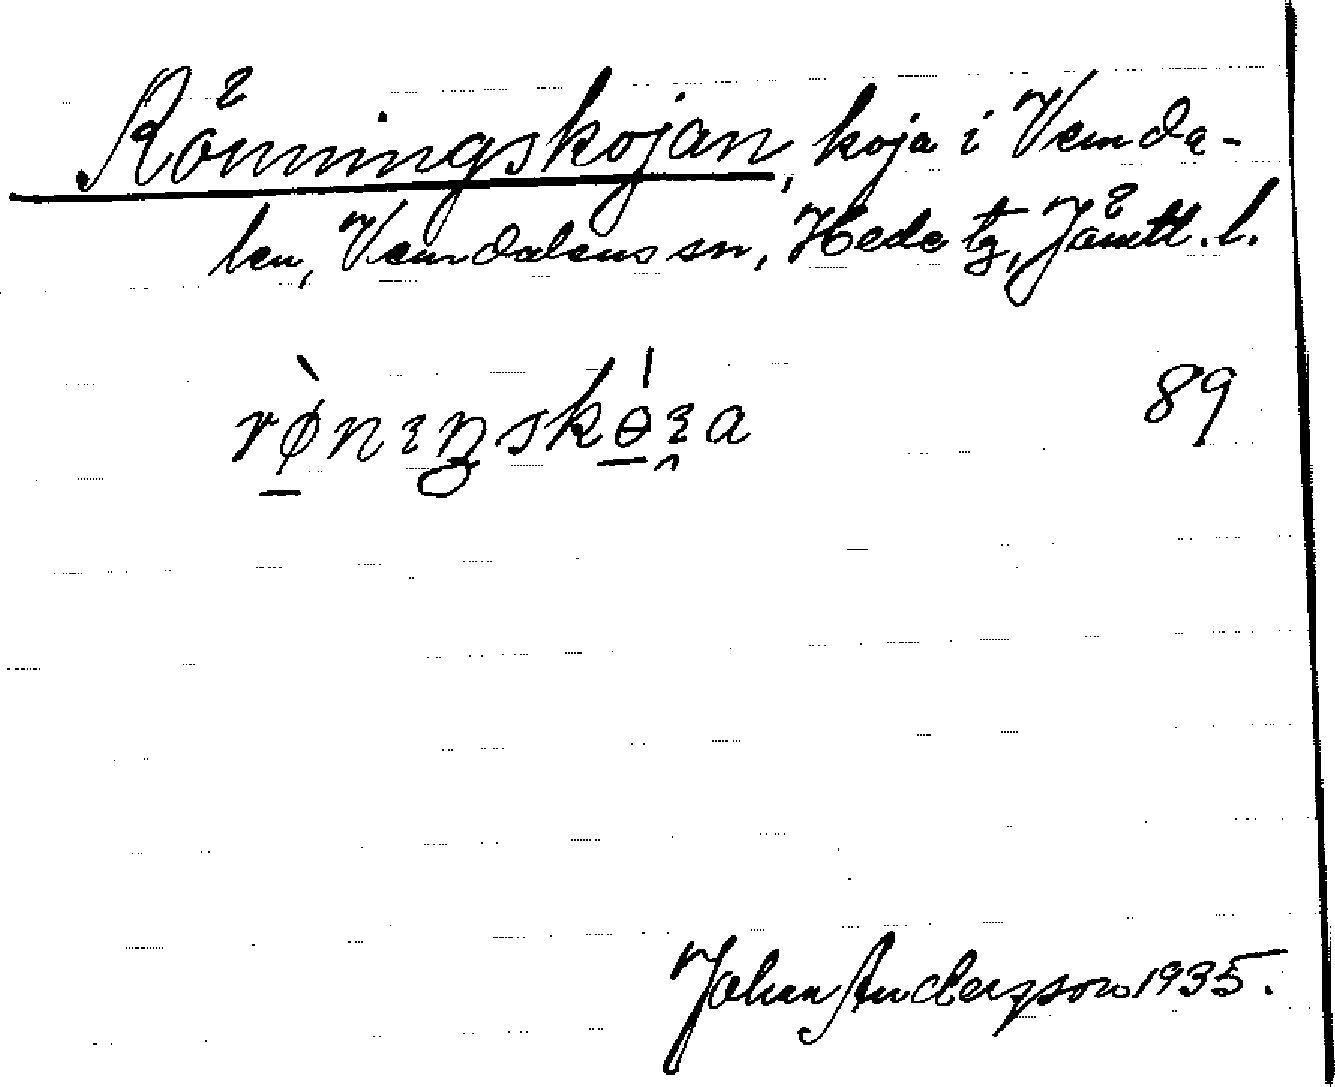 Rönningskojan, koja i Vemda-
len, Vemdalens sn, Hede tg, Jämtl. l.
rø̀nıŋskɵ́ı̯a 89
Johan Anderzson 1935.